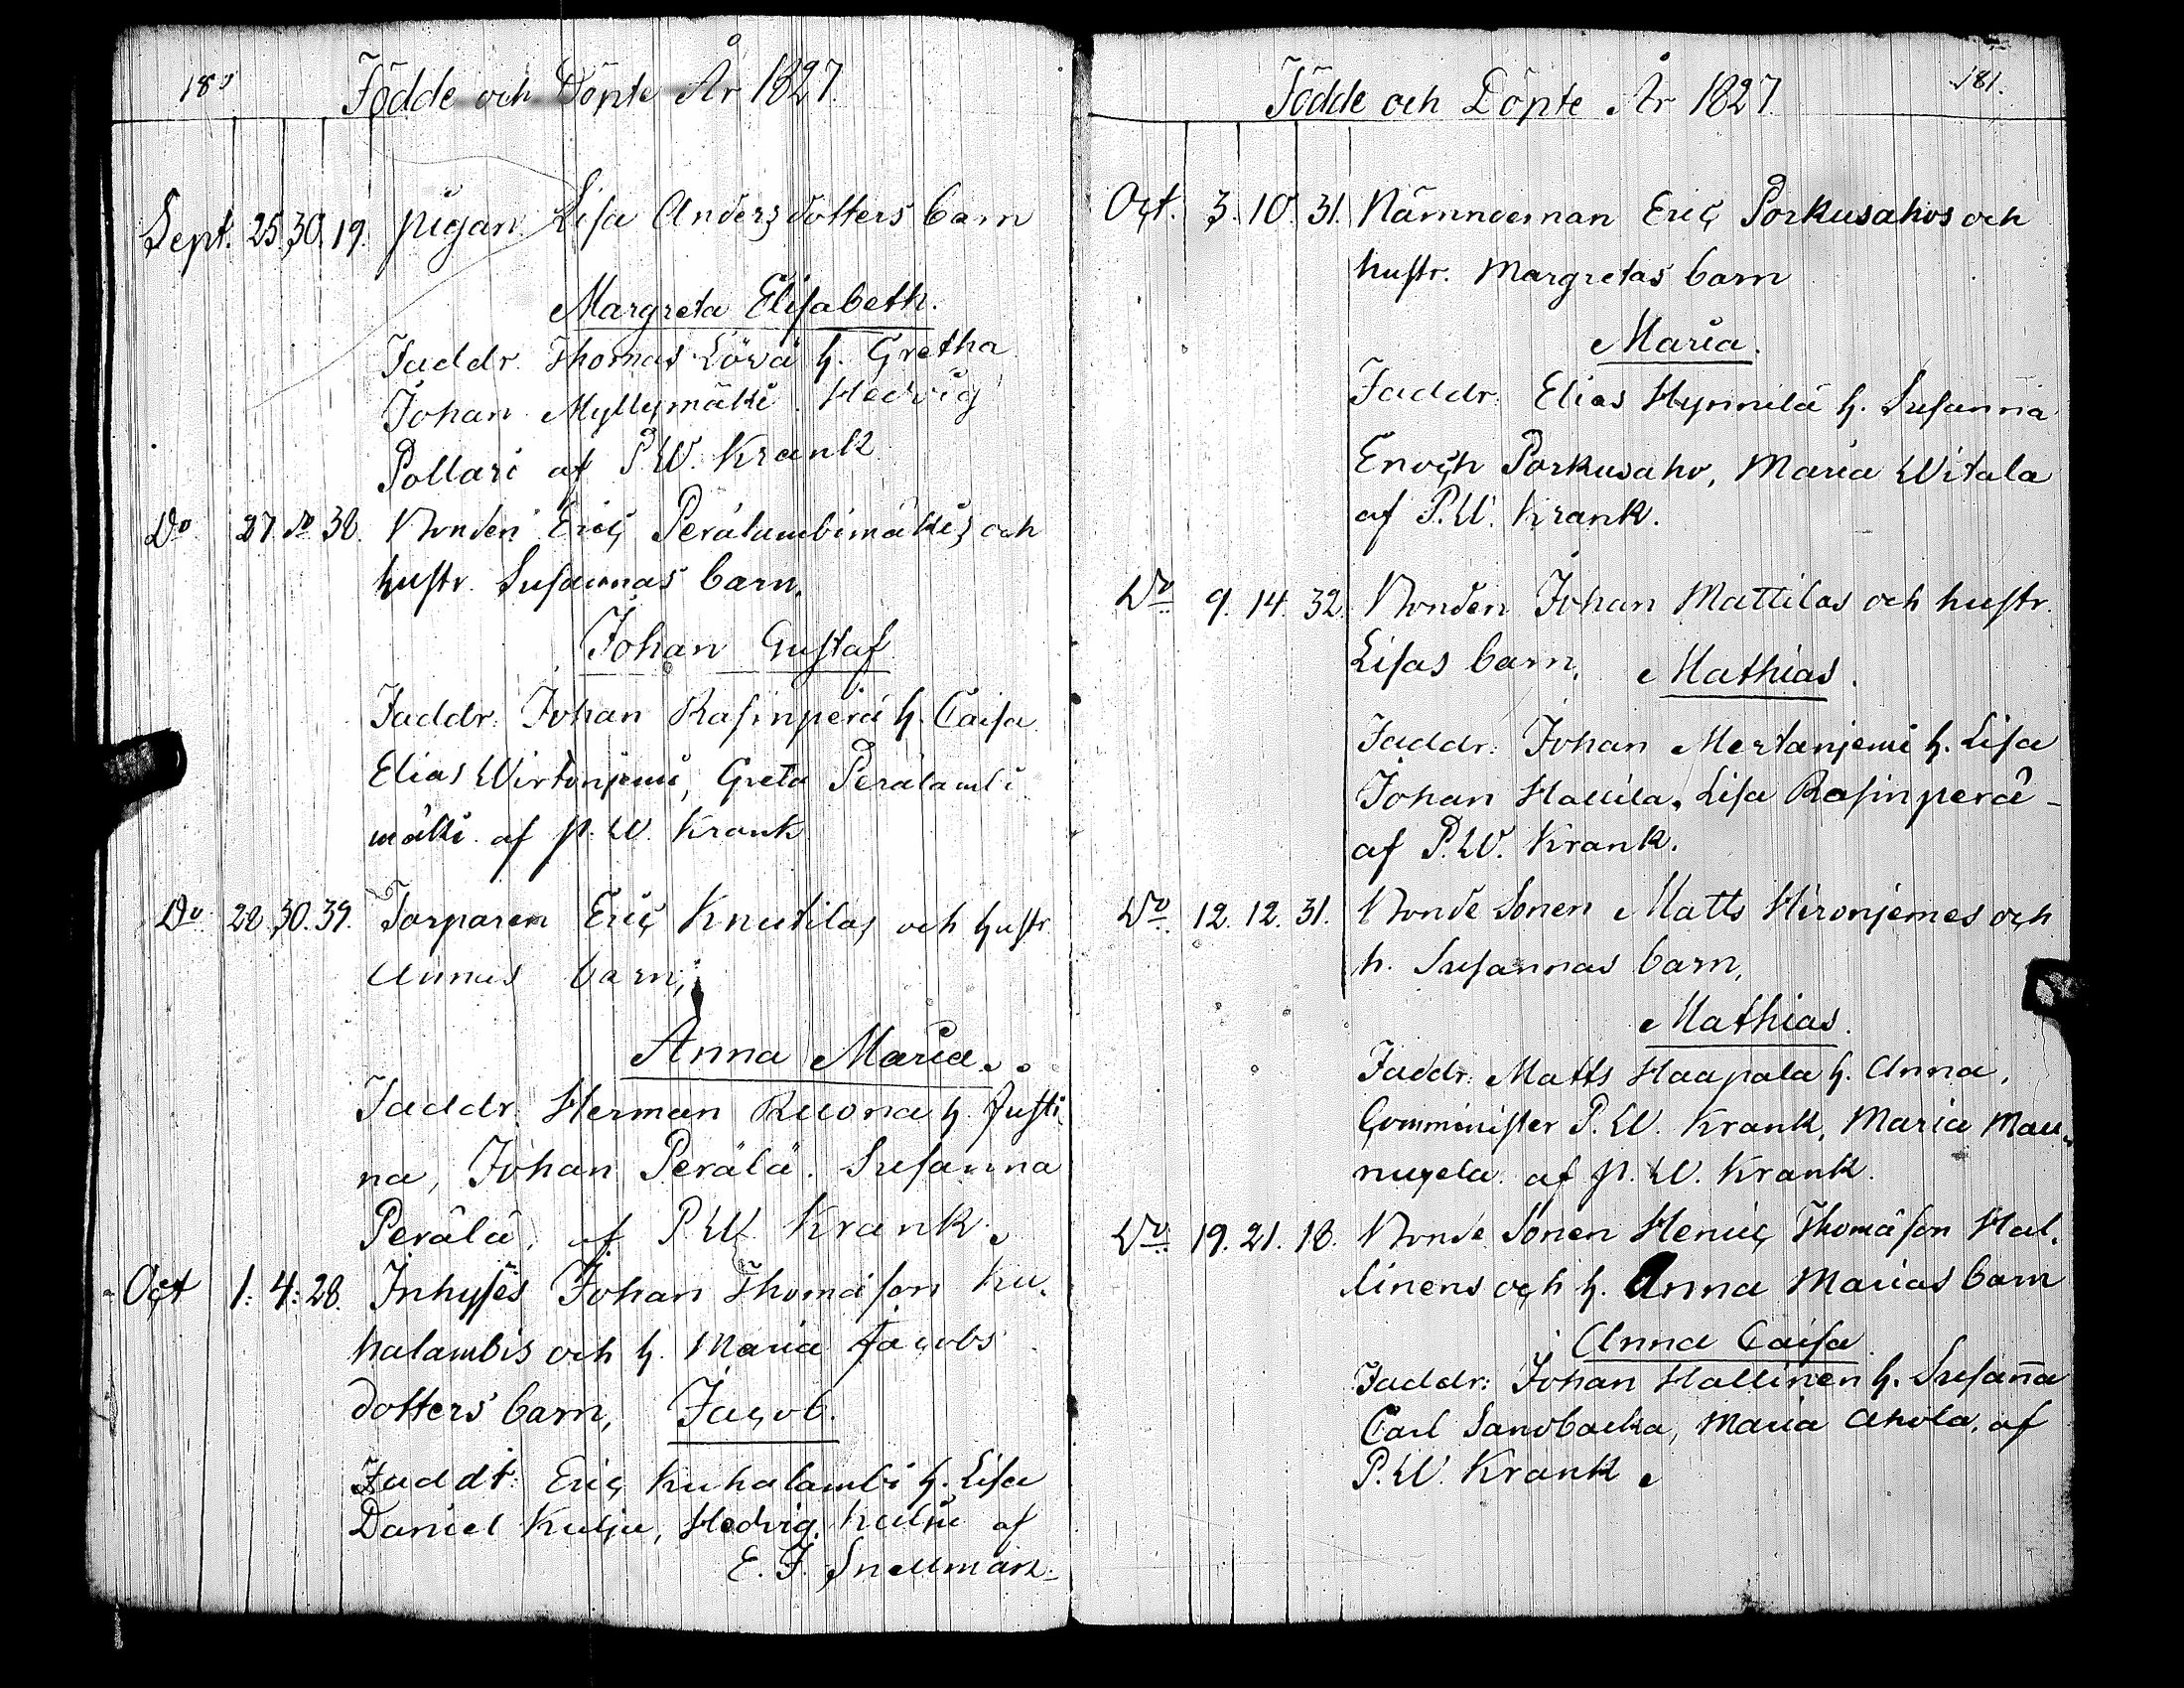 180
Födde och Döpte År 1827.
Sept. 25. 30. 19. pigan Lisa Andersdotters barn
Margreta Elisabeth.
Faddr. Thomas Lövä h. Gretha
Johan Myllymäki. Hedvig
Pollari af P.W. Krank
Do 27. do 38. Bonden Eric Perälambimäkis och
hustr. Susannas barn.
Johan Gustaf
Faddr: Johan Rasinperä h. Caisa
Elias Wirtonjemi, Greta Perälambi
mäki af P. W. Krank
Do 28. 30. 39. Torparen Eric Knutilas och hustr
Annas barn,
Anna Maria.
Faddr: Herman Ruona h. Justi
na, Johan Perälä. Susanna
Perälä, af P.W. Krank.
Oct 1: 4: 28. Inhyses Johan Thomasson Ku-
halambis och h. Maria Jacobs
dotters barn, Jacob.
Faddr: Eric Kuhalambi h. Lisa
Daniel Kulju, Hedvig Kulju af
E. J. Snellman.
181.
Födde och Döpte År 1827.
Oct. 3. 10. 31. Nämndeman Eric Porkusahos och
hustr. Margretas barn
Maria.
Faddr: Elias Hynnilä h. Susanna
Enoch Porkusaho, Maria Witala
af P.W. Krank.
Do 9. 14. 32. Bonden Johan Mattilas och hustr.
Lisas barn, Mathias.
Faddr: Johan Mertanjemi h. Lisa
Johan Hallila, Lisa Rasinperä
af P.W. Krank.
Do 12. 12. 31. Bonde Sonen Matts Hironjemes och
h. Susannas barn,
Mathias.
Faddr: Matts Haapala h. Anna,
Comminister P.W. Krank, Maria Mau-
nuxela af P. W. Krank.
Do 19. 21. 18. Bonde Sonen Henric Thomasson Hal-
linens och h. Anna Marias barn
Anna Caisa.
Faddr: Johan Hallinen h. Susan̄a
Carl Sandbacka, Maria Ahola, af
P.W. Krank